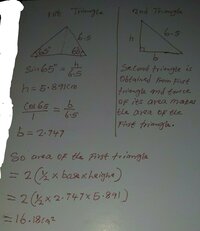 1st Triangle
2nd Triangle
6.5
65°
65°
h
6.5
b
Sin65° = h/6.5
h = 5.891cm
Cos65/1 = b/6.5
b = 2.747
Second triangle is
obtained from first
triangle and twice
of its area makes
the area of the
first triangle.
So area of the first triangle
= 2(½ x base x height)
= 2(½ x 2.747 x 5.891)
= 16.18cm²